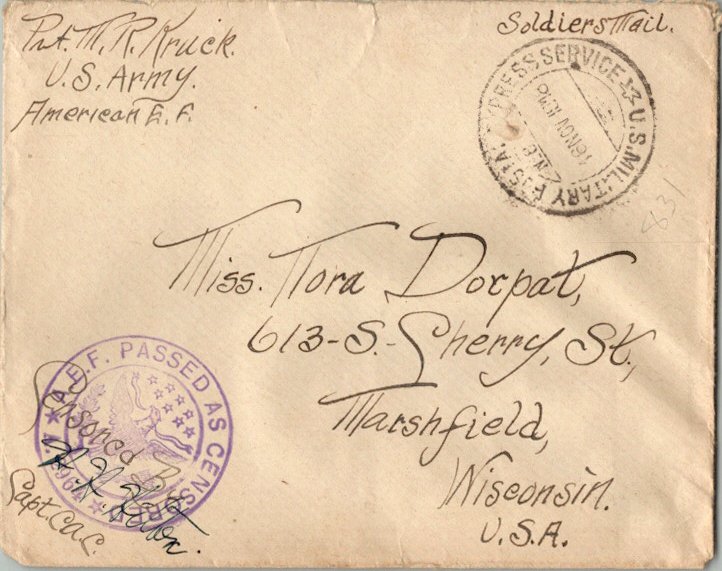 Pvt. M. R. Kruck.
U.S. Army.
American E. F.
Soldiers Mail.
U.S. MILITARY POSTAL EXPRESS SERVICE
NOV
831
Miss. Nora Dorpat,
613-S. Cherry, St.,
Marshfield,
Wisconsin.
U.S.A.
A.E.F. PASSED AS CENSORED
Censored By
Capt. C.A.C.